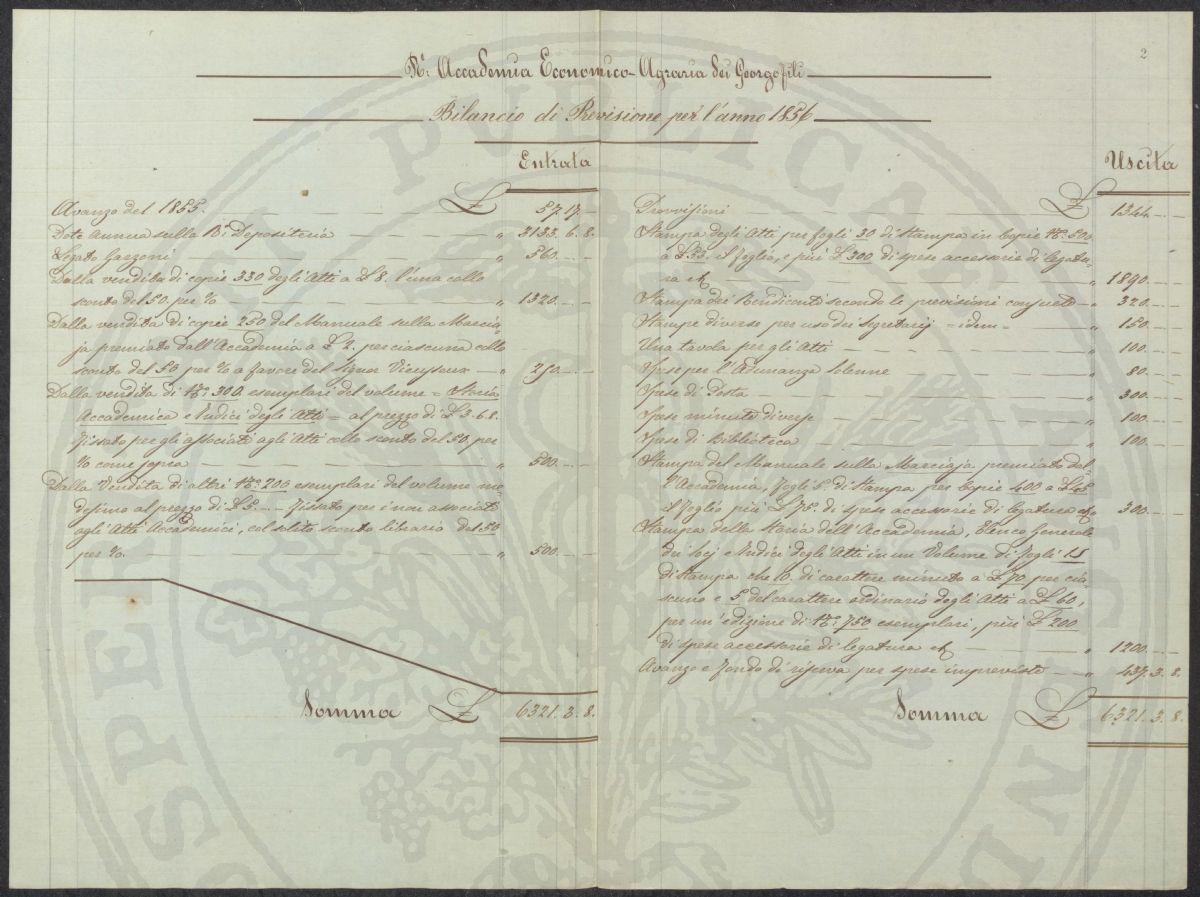 Ra. Accademia Economico-Agraria dei Georgofili
2
Bilancio di Previsione per l'anno 1856
Entrata
Avanzo del 1855. £ 57.17.–
Dote annua sulla R. Depositeria " 3133.6.8.
Legato Garzoni " 560.–.–
Dalla vendita di copie 330 degli Atti a £ 8. l'una collo
sconto del 50. per % " 1320.–.–
Dalla vendita di copie 250 del Manuale sulla Marcia-
ja premiato dall'Accademia a £ 2. per ciascuna collo
sconto del 50 per % a favore del Signor Vieusseux " 250.–.–
Dalla vendita di No. 300. esemplari del volume = Storia
Accademica e Indici degli Atti – al prezzo di £ 3.6.8.
fissato per gli associati agli Atti collo sconto del 50. per
% come sopra " 500.–.–
Dalla Vendita di altri No. 200 esemplari del volume me-
desimo al prezzo di £ 5.– fissato per i non associati
agli Atti Accademici, col solito sconto librario del 50
per %. " 500.–.–
Somma £ 6321.3.8.
Uscita
Provvisioni £ 1344.–.–
Stampa degli Atti per fogli 30 di stampa in copie No. 500
a £ 53. il foglio, e più £ 300 di spese accessorie di legatu-
ra etc. " 1890.–.–
Stampa dei Rendiconti secondo le previsioni consuete " 320.–.–
Stampe diverse per uso dei Segretarij = idem = " 150.–.–
Una tavola per gli Atti " 100.–.–
Spese per l'Adunanza solenne " 80.–.–
Spese di Posta " 300.–.–
Spese minute diverse " 100.–.–
Spese di Biblioteca " 100.–.–
Stampa del Manuale sulla Marciaja premiato dal-
l'Accademia, fogli 5 di stampa per copie 400 a £ 45
il foglio più £ 75. di spese accessorie di legatura etc. 300.–.–
Stampa della Storia dell'Accademia, Elenco Generale
dei Socj e Indici degli Atti in un Volume di fogli 15
di stampa che 10. di carattere minuto a £ 70 per cia-
scuno e 5 del carattere ordinario degli Atti a £ 60,
per un'edizione di No. 750 esemplari, più £ 200
di spese accessorie di legatura etc. " 1200.–.–
Avanzo e fondo di riserva per spese impreviste " 437.3.8.
Somma £ 6321.3.8.